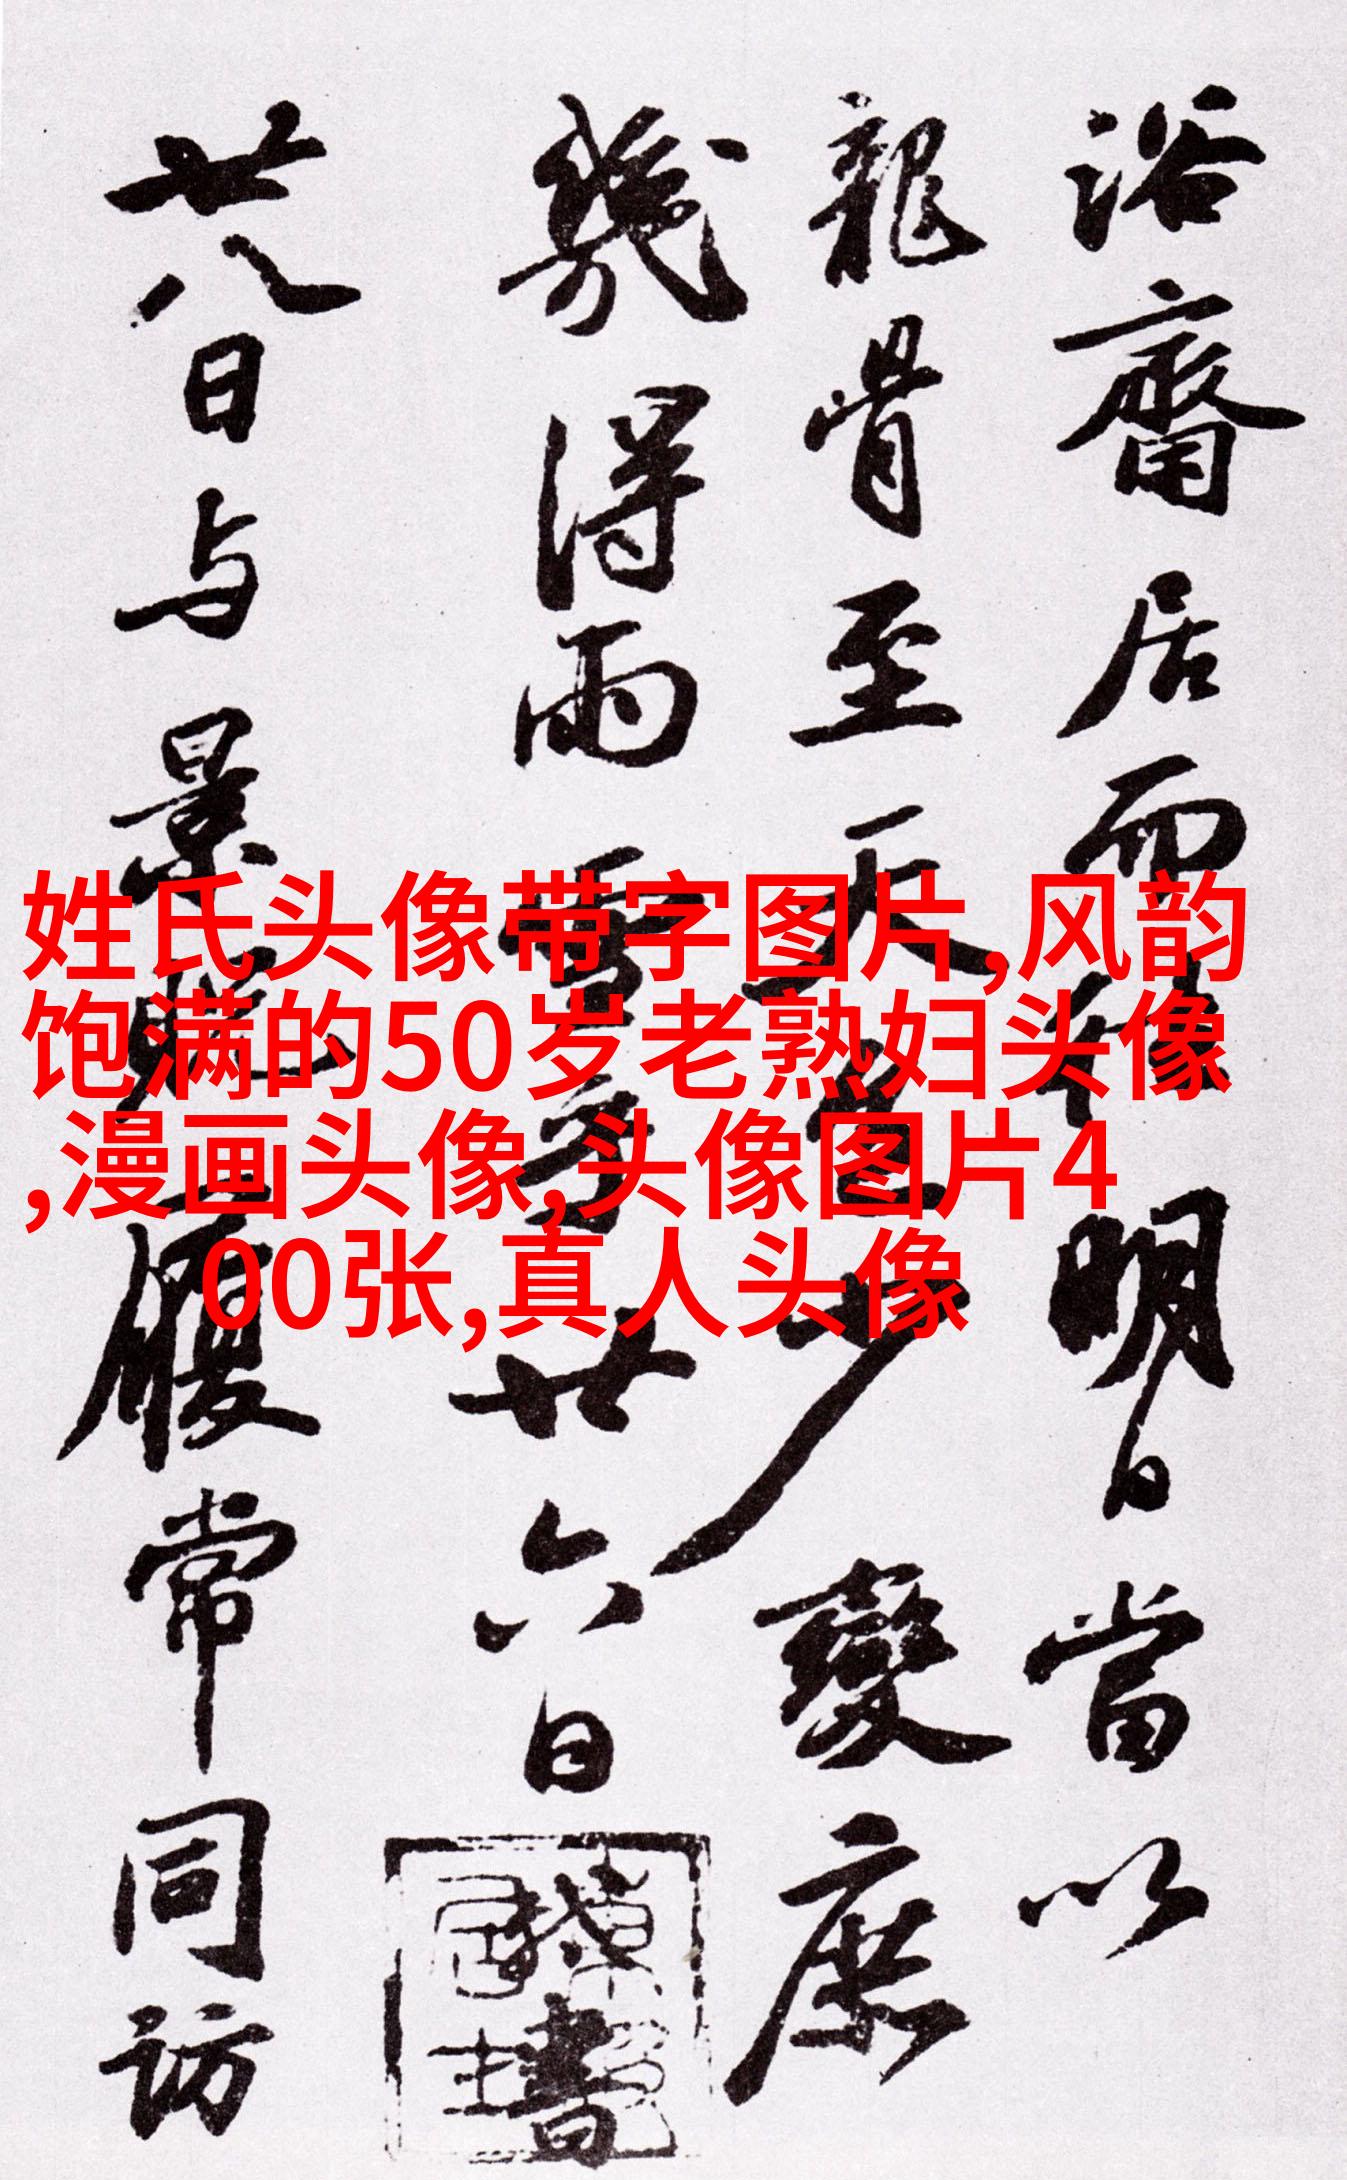 浴齋居而待明日當以
龍骨至天色少變庶
幾得雨雪寺廿六日
書
廿八日与景貺履常同訪
姓氏头像带字图片,风韵
饱满的50岁老熟妇头像
,漫画头像,头像图片4
00张,真人头像